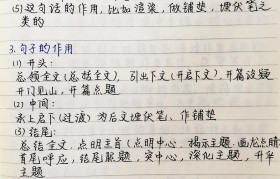 (5)这句话的作用,比如渲染,做铺垫,埋伏笔之
类的
3.句子的作用
(1)开头:
总领全文(总括全文),引出下文(开启下文),开篇设疑
开门见山,开篇点题
(2)中间:
承上启下(过渡)为后文埋伏笔、作铺垫
(3)结尾:
总结全文.点明主旨(点明中心、揭示主题.画龙点睛
首尾呼应,结尾照题,突中心,深化主题,升华
主题